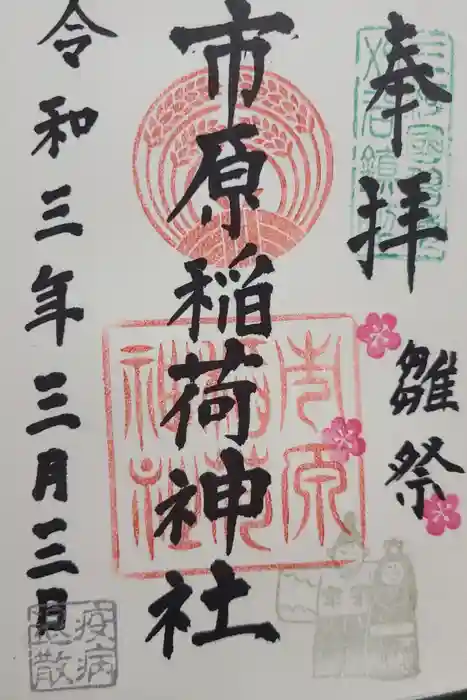 奉拝
雛祭
市原稲荷神社
市原
稲荷
神社
令和三年三月三日
疫病
退散